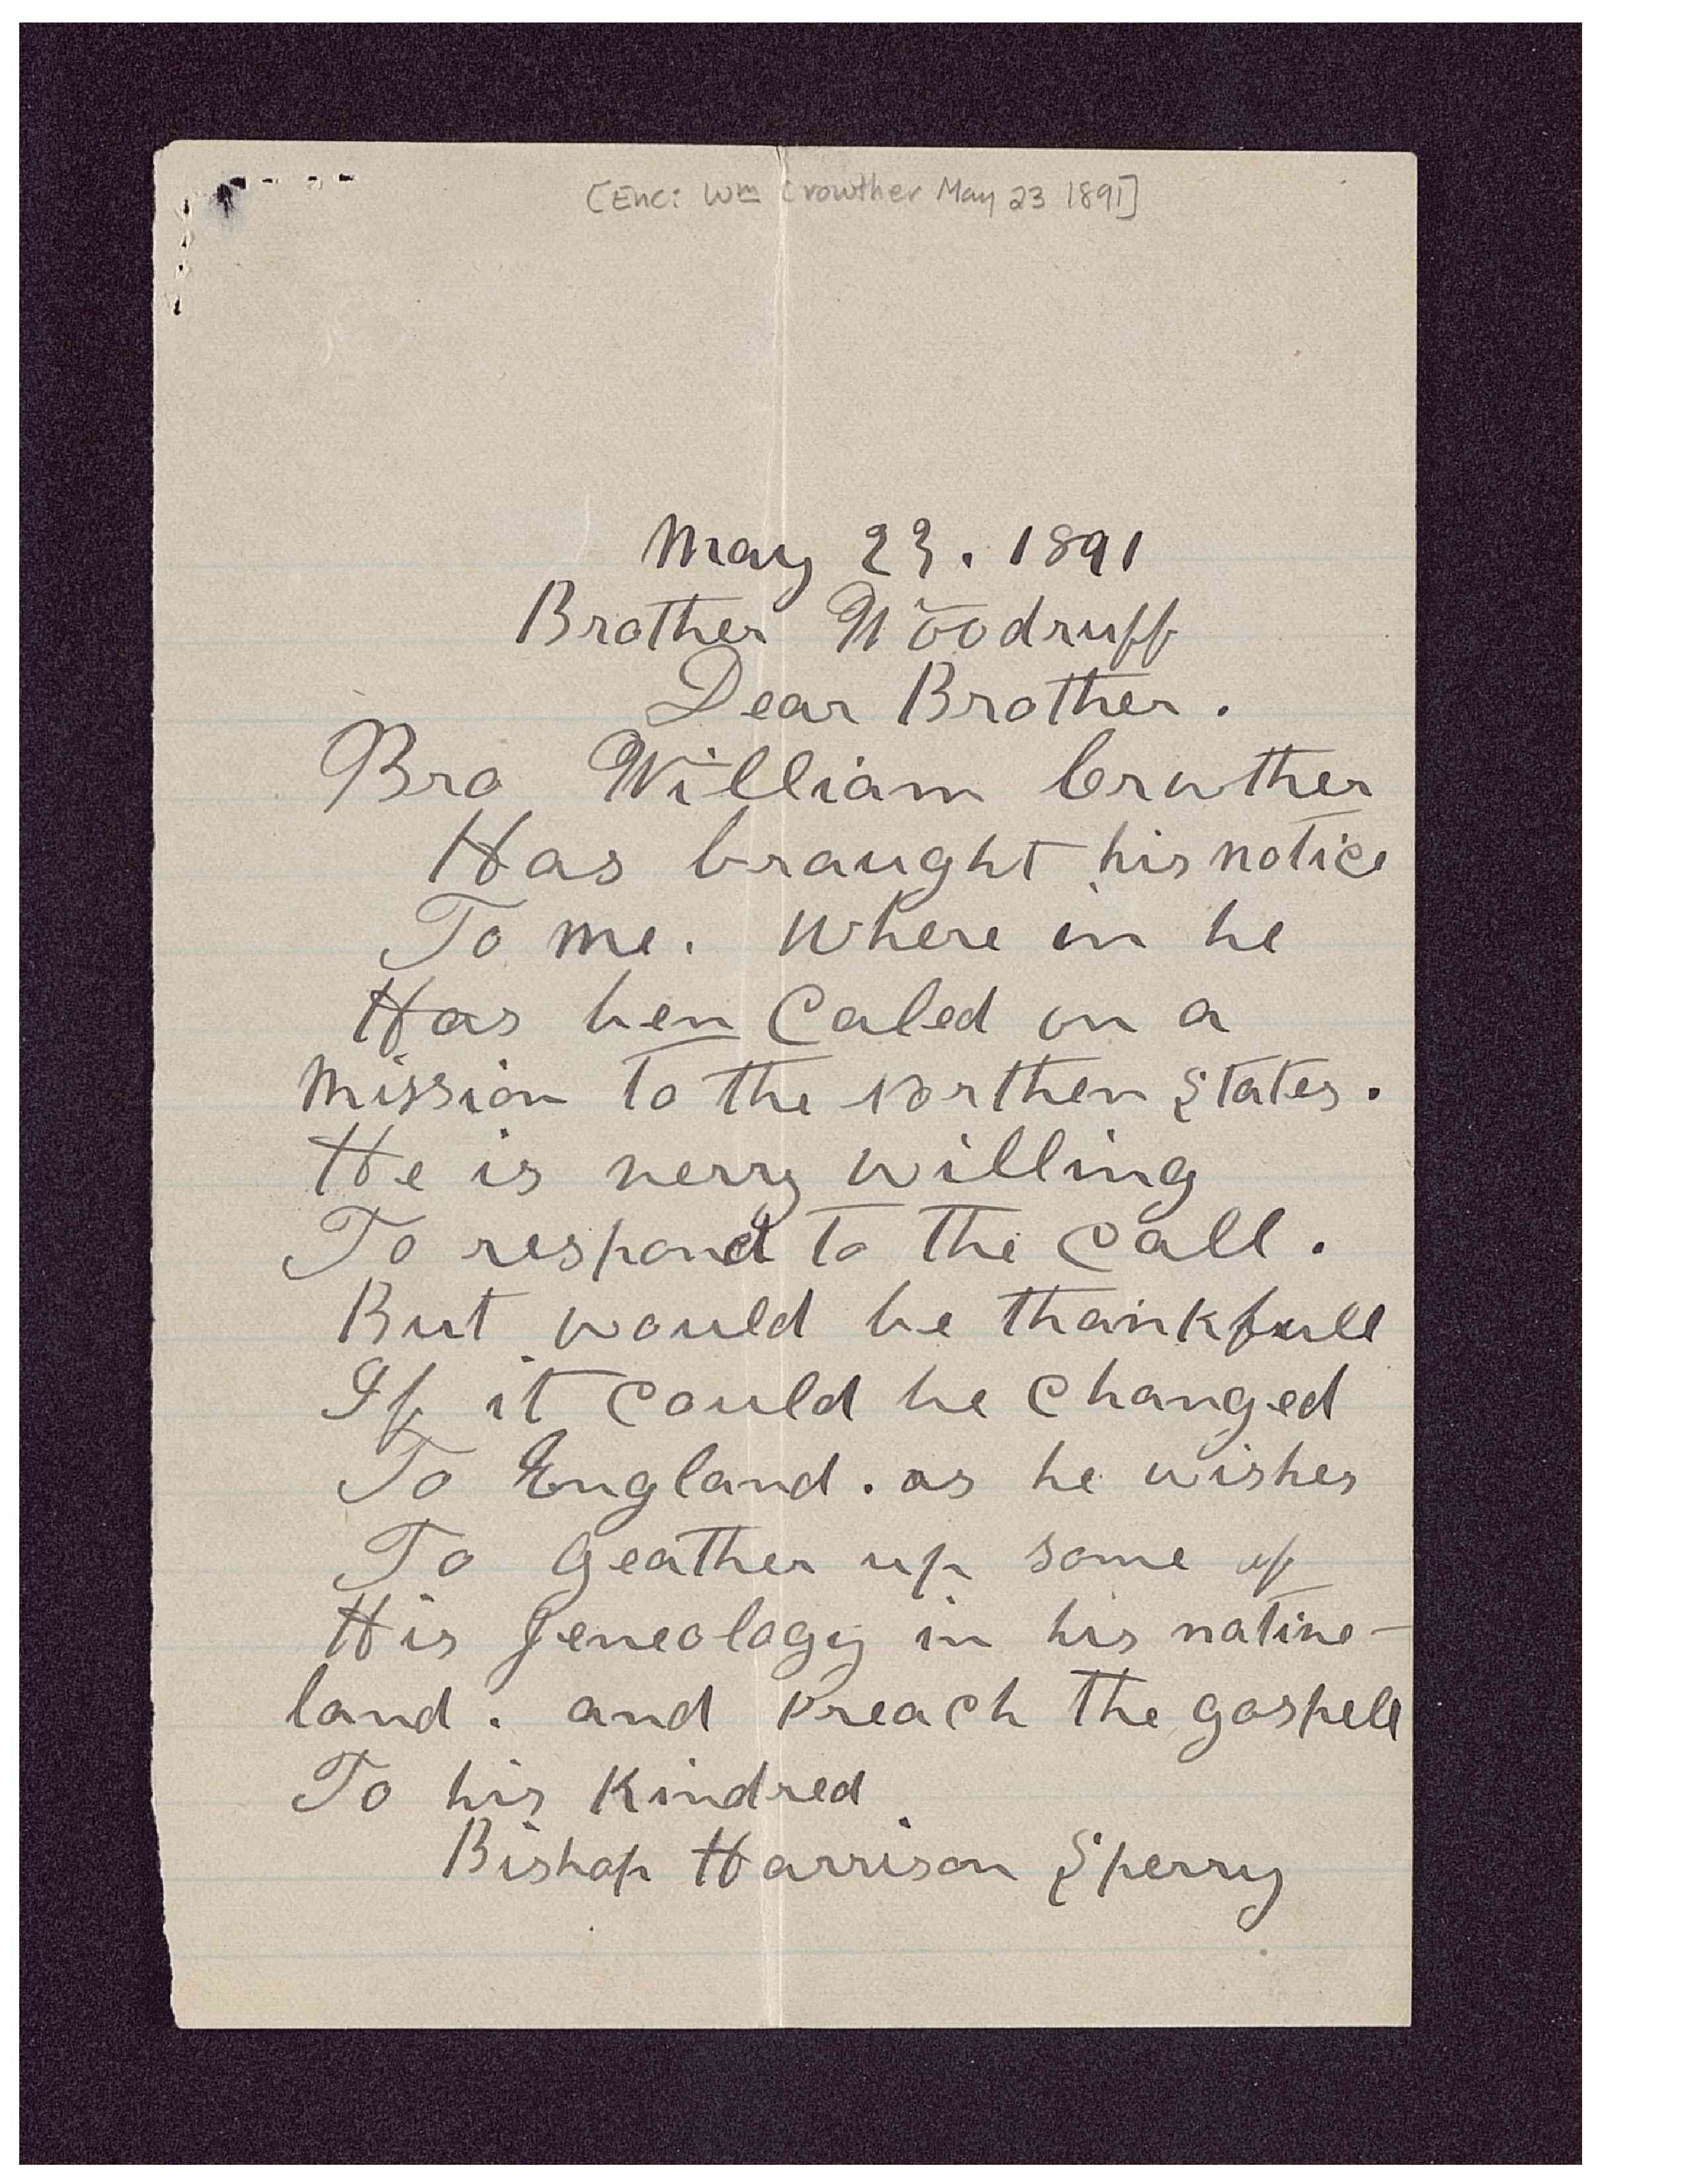 [Enc: Wm Crowther May 23 1891]
May 23. 1891
Brother Woodruff
Dear Brother.
Bro William Cruther
Has braught his notice
To me. Where in he
Has ben Caled on a
Mission to the Northen States.
He is verry willing
To respond to the Call.
But would be thankfull
If it Could be Changed
To England. as he wishes
To Geather up some of
His Geneology in his native-
land. and Preach the gospell
To his Kindred
Bishop Harrison Sperry